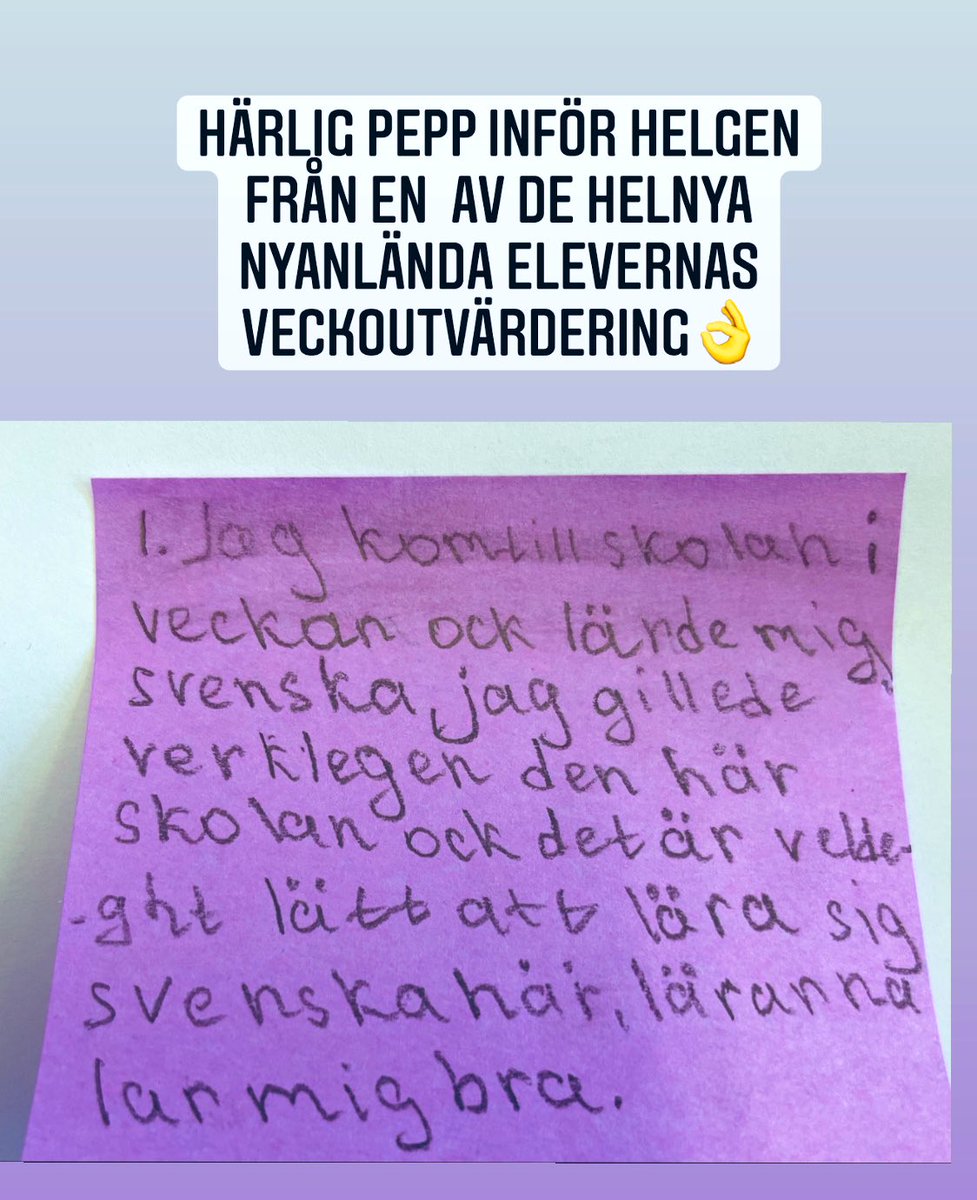 HÄRLIG PEPP INFÖR HELGEN
FRÅN EN AV DE HELNYA
NYANLÄNDA ELEVERNAS
VECKOUTVÄRDERING👌
1. Jag kom till skolan i
veckan ock lärde mig
svenska, jag gillede
verklegen den här
skolan ock det är velde-
-ght lätt att lära sig
svenska här, läranna
lar mig bra.